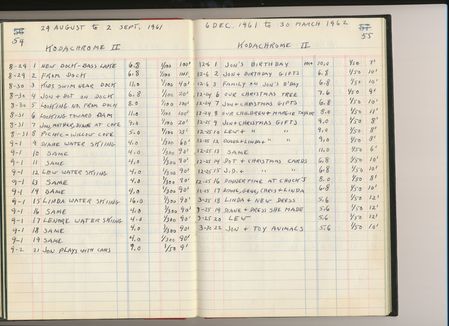 54
24 AUGUST to 2 SEPT. 1961
KODACHROME II
8-29 1 NEW DOCK-BASS LAKE 6.8 1/100 100'
8-29 2 FROM DOCK 6.8 1/100 100'
8-30 3 KIDS SWIM NEAR DOCK 11.0 1/100 40'
8-30 4 JON & DOT ON DOCK 6.8 1/100 20'
8-30 5 LOOKING NO. FROM DOCK 8.0 1/100 100'
8-31 6 LOOKING TOWARD DAM 11.0 1/100
8-31 7 JON, DIANE AT CAFE 9.0 1/100 20'
8-31 8 PICNIC-WILLOW COVE 5.0 1/100 25'
9-1 9 DIANE WATER SKIING 4.0 1/300 60'
9-1 10 SAME 4.0 1/300 90'
9-1 11 SAME 4.0 1/300 90'
9-1 12 LEW WATER SKIING 4.0 1/300 90'
9-1 13 SAME 4.0 1/300 90'
9-1 14 SAME 4.0 1/300 90'
9-1 15 LINDA WATER SKIING 4.0 1/300 90'
9-1 16 SAME 4.0 1/300 90'
9-1 17 LENORE WATER SKIING 4.0 1/300 90'
9-1 18 SAME 4.0 1/300 90'
9-1 19 SAME 4.0 1/300 90'
9-2 21 JON PLAYS WITH CARS 9.0 1/50 9'
55
6 DEC. 1961 to 30 MARCH 1962
KODACHROME II
12-6 1 JON'S BIRTHDAY 10.0 1/50 7'
12-6 2 JON & BIRTHDAY GIFTS 6.8 1/50 10'
12-6 3 FAMILY ON JON'S B'DAY 6.8 1/50 10'
12-24 6 OUR CHRISTMAS TREE 7.6 1/50 9'
12-24 7 JON & CHRISTMAS GIFTS 6.8 1/50 10'
12-24 8 OUR CHILDREN & MARGIE 8.0 1/50 11'
12-25 9 JON & CHRISTMAS GIFTS 9.0 1/50 8'
12-25 10 LEW & " " 9.0 1/50 8'
12-25 12 " " 9.0 1/50 8'
12-25 13 SAME 12.0 1/50 6'
12-25 14 DOT & CHRISTMAS CARDS 6.8 1/50 10'
12-25 15 J.D. & " " 6.8 1/50 10'
12-25 16 AT CHUCK'S 8.0 1/50 8'
GENE, CHRIS & LINDA 6.8 1/50 10'
3-25 18 LINDA & NEW DRESS 5.6 1/50 12'
3-25 19 DIANE & DRESS SHE MADE 5.6 1/50 12'
3-25 20 LEW 5.6 1/50 12'
3-30 22 JON & TOY ANIMALS 5.6 1/50 10'